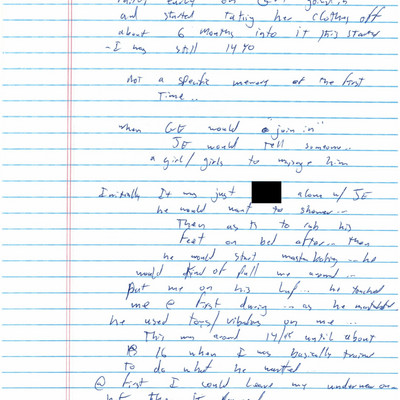 early on
and started taking her clothes off
about 6 months into it this started
- I was still 14 yo
not a specific memory of the first
time..
when GE would "join in"
JE would tell someone..
a girl/girls to massage him
Initially It was just alone w/ JE
he would want to shower..
Then ask to rub his
feet on bed after... then
he would start masturbating... he
would kind of pull me around..
Put me on his .. he touched
me @ first during ... as he masturbated
he used toys/vibrators on me ..
This was around 14/15 until about
16 when I was basically trained
To do what he wanted
@ first I could leave my underwear on